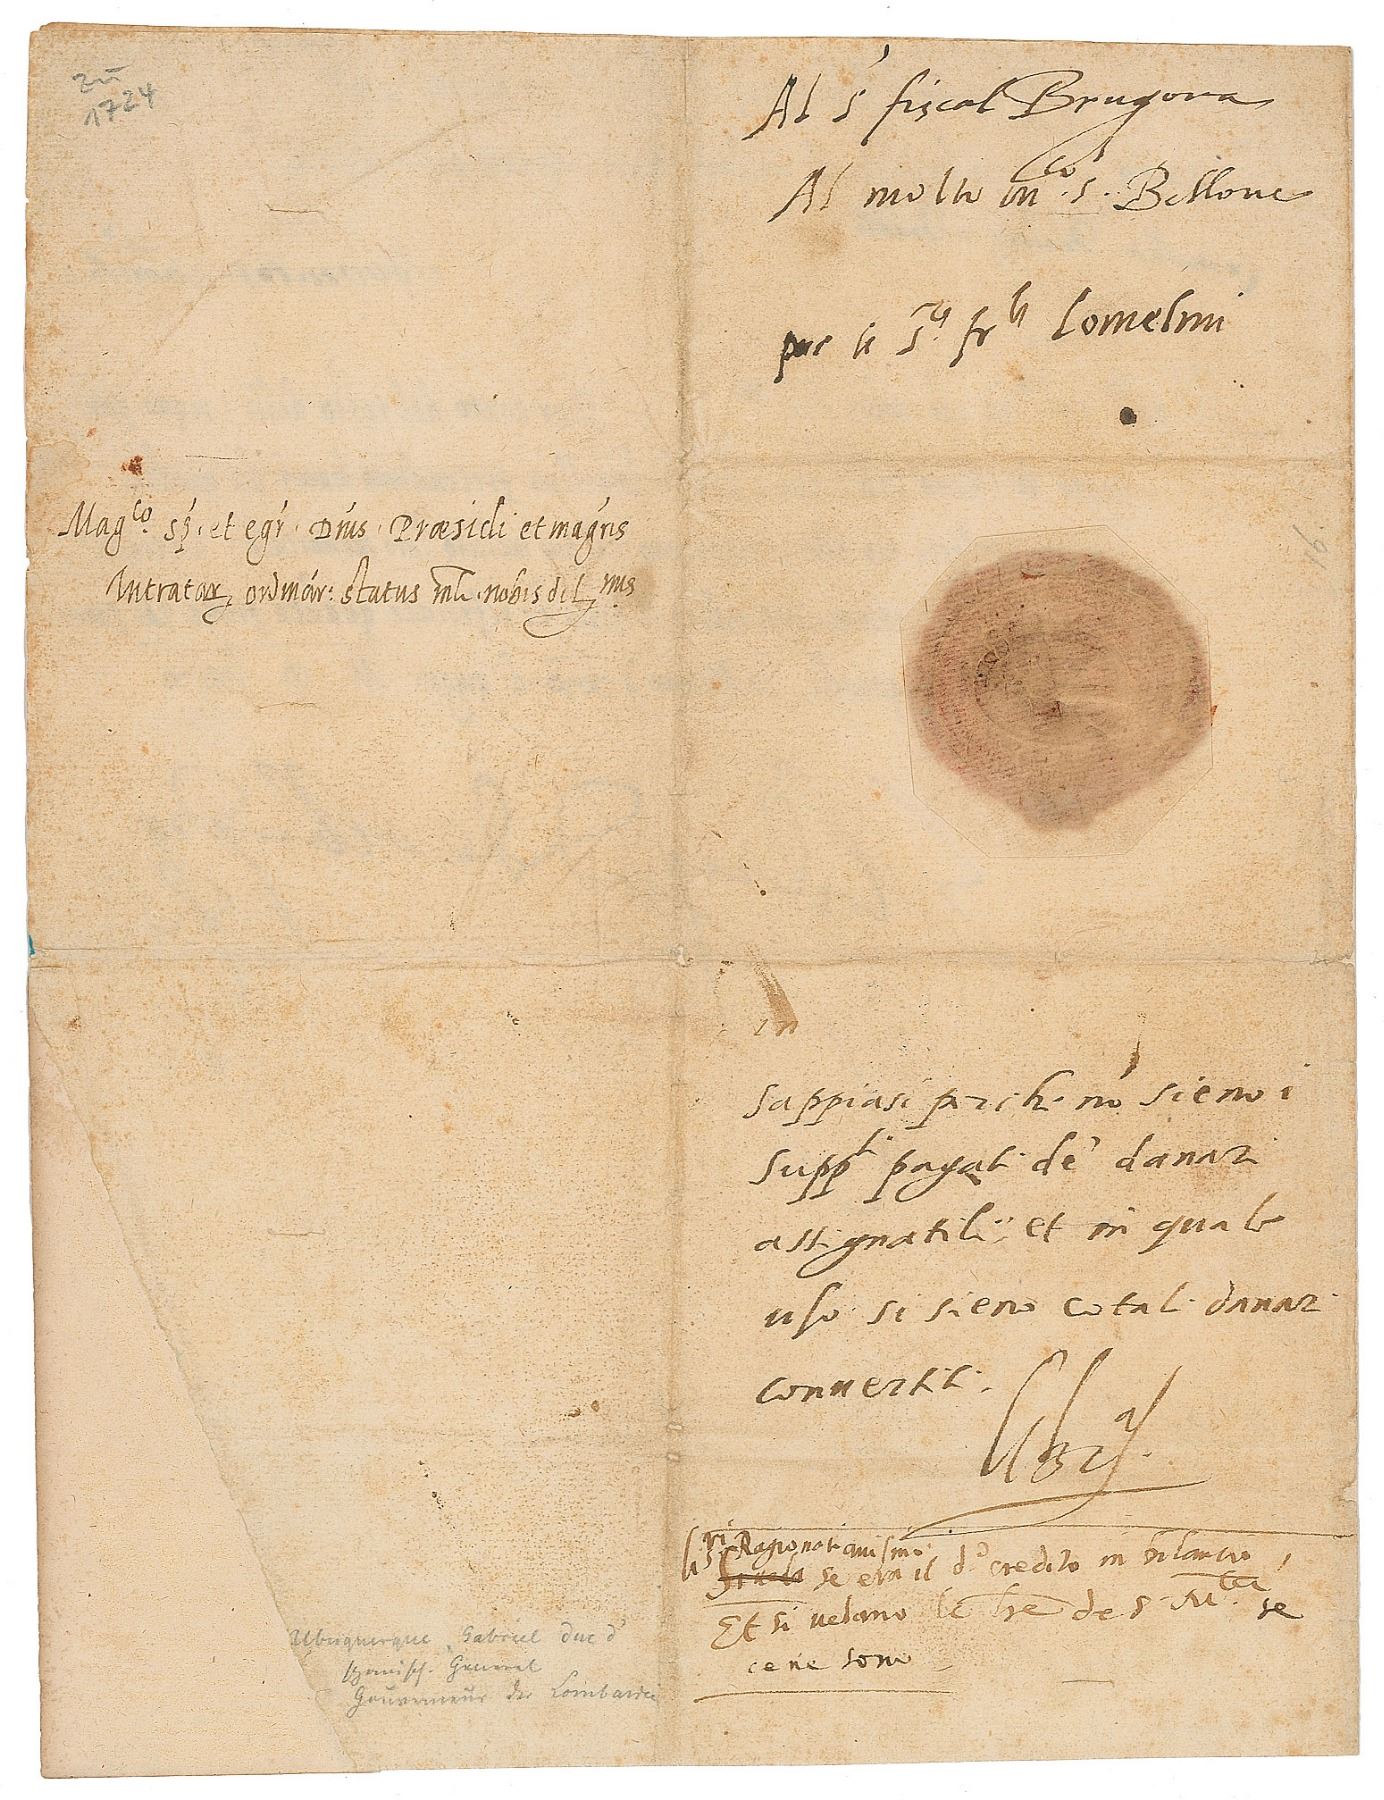 zu
1724
Al S.r fiscal Brugora
Al molto m.co s.r Bellone
per li S.ri fr.li Lomelini
Mag.co sp. et egr. Dñis Præsidi et magr̃is
Intratar. ordinar: status mli. nobis dil.mis
in
Sappiasi perche nõ sieno i
supp.ti pagati de' danari
assignatili: et in quale
uso si sieno cotali danari
convertiti.
li s.ri Ragionati avisino
se era il d.o credito in bilancio,
Et si vedano le lre de S. M.ta se
ce ne sono
Albuquerque, Gabriel duc d'
spanisch. General
Gouverneur der Lombardei